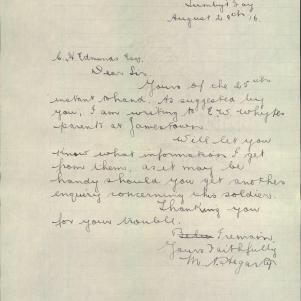 August 29th 16
C. H. Edmunds Esq.
Dear Sir,
Yours of the 25th
instant to hand. As suggested by
you, I am writing to E. W. Whytes
parents at Jamestown.
Will let you
know what information I get
from them, as it may be
handy should you get another
enquiry concerning this soldier.
Thanking you
for your trouble.
I remain
Yours Faithfully